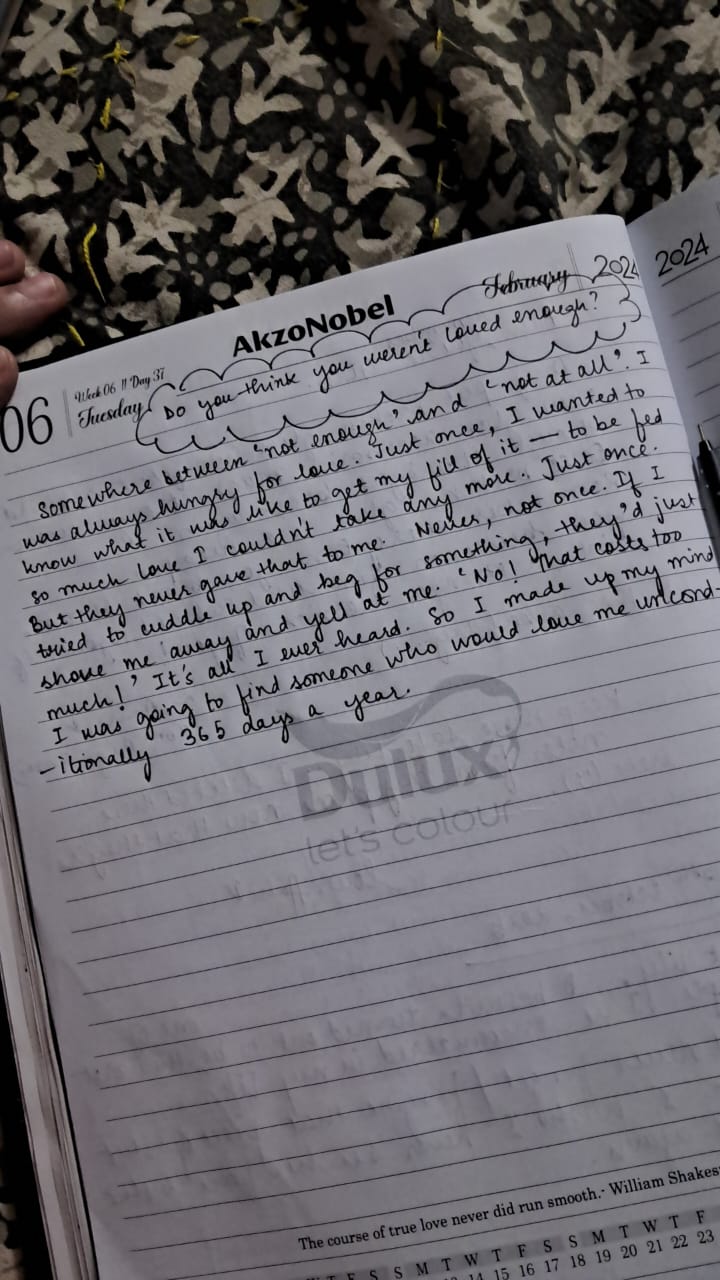 February 2024
2024
AkzoNobel
06
Week 06 || Day 37
Tuesday
Do you think you weren't loved enough?
Somewhere between 'not enough' and 'not at all'. I
was always hungry for love. Just once, I wanted to
know what it was like to get my fill of it — to be fed
so much love I couldn't take any more. Just once.
But they never gave that to me. Never, not once. If I
tried to cuddle up and beg for something, they'd just
shove me away and yell at me. 'No! That costs too
much!' It's all I ever heard. So I made up my mind
I was going to find someone who would love me uncond-
-itionally 365 days a year.
Dulux
let's colour
The course of true love never did run smooth.- William Shakes
S S M T W T F S S M T W T F
14 15 16 17 18 19 20 21 22 23